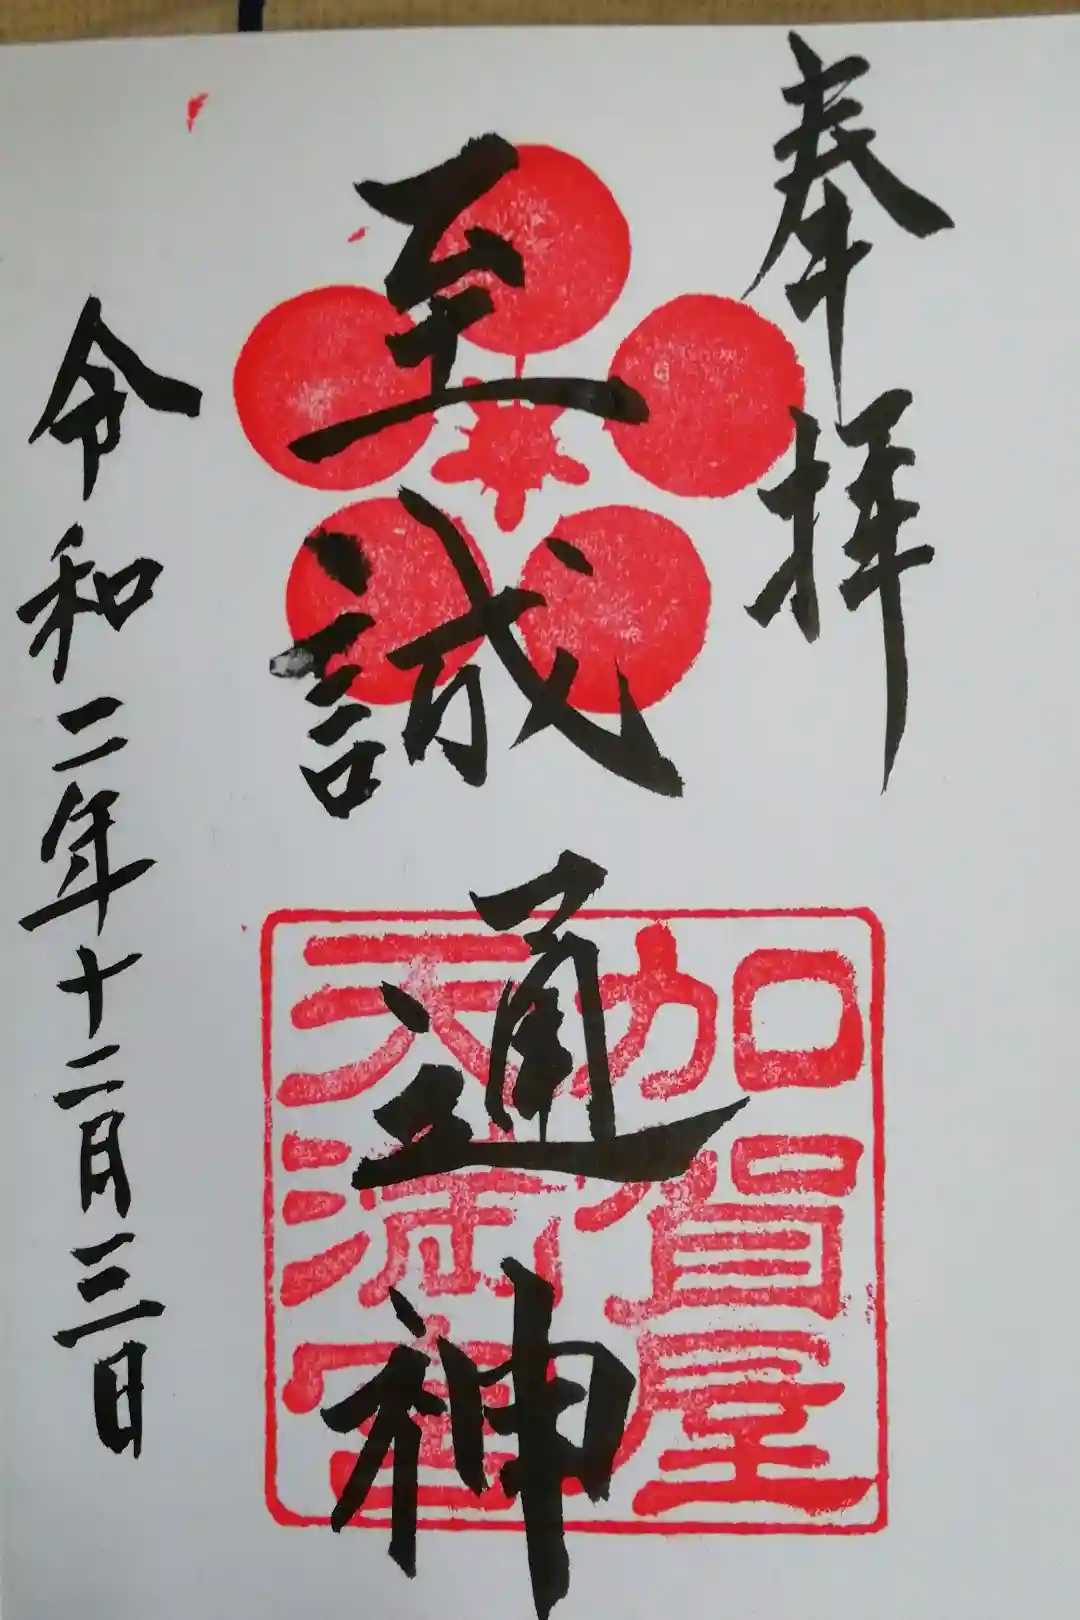 奉拝
至誠通神
加賀屋
天満宮
令和二年十二月三日